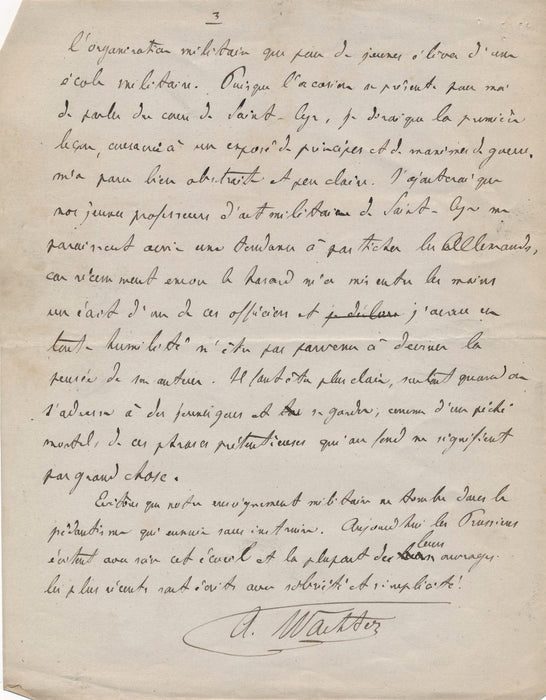 3
l'organisation militaire que pour de jeunes élèves d'une
école militaire. Puisque l'occasion se présente pour moi
de parler du cours de Saint-Cyr, je dirai que la première
leçon, consacrée à un exposé de principes et de maximes de guerre,
m'a paru bien abstraite et peu claire. J'ajouterai que
nos jeunes professeurs d'art militaire de Saint-Cyr me
paraissent avoir une tendance à pasticher les Allemands,
car récemment encore le hasard m'a mis entre les mains
un écrit d'un de ces officiers et je déclare j'avoue en
toute humilité n'être pas parvenu à deviner la
pensée de son auteur. Il faut être plus clair, surtout quand on
s'adresse à des jeunes gens et se garder, comme d'un péché
mortel, de ces phrases prétentieuses qui au fond ne signifient
pas grand chose.
Evitons que notre enseignement militaire ne tombe dans le
pédantisme qui ennuie sans instruire. Aujourd'hui les Prussiens
évitent avec soin cet écueil et la plupart de leurs ouvrages
les plus récents sont écrits avec sobriété et simplicité.
A. Wachter